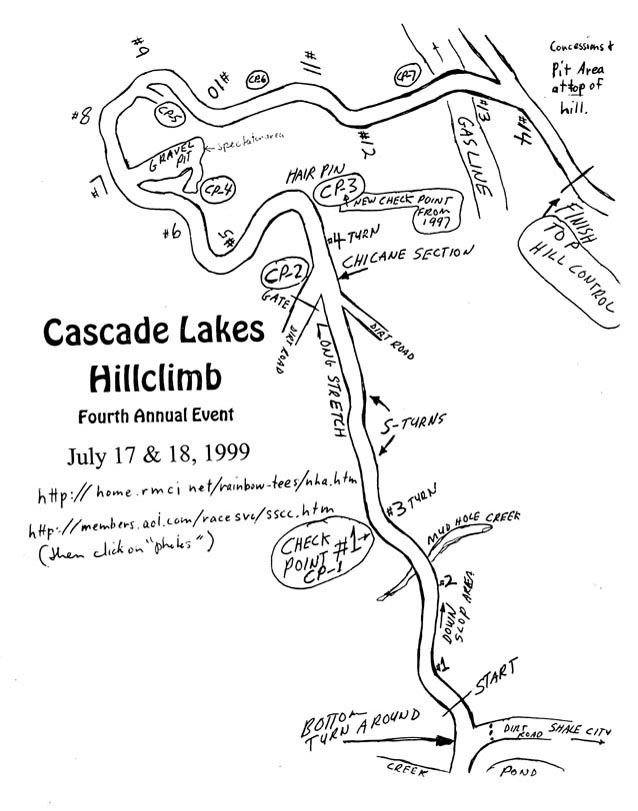 Concessions &
Pit Area
at top of
hill.
#9
#10
CP-6
#11
CP-7
#8
CP-5
#12
#13
#14
GASLINE
GRAVEL
PIT
spectator area
#7
CP-4
HAIR PIN
CP-3
NEW CHECK POINT
FROM
1997
FINISH
TOP
HILL CONTROL
#6
#5
#4 TURN
CHICANE SECTION
CP-2
GATE
DIRT ROAD
DIRT ROAD
LONG STRETCH
Cascade Lakes
Hillclimb
Fourth Annual Event
July 17 & 18, 1999
S-TURNS
http://home.rmci net/rainbow-tees/nha.htm
http://members.aol.com/racesvc/sscc.htm
(then click on "photos")
#3 TURN
MUD HOLE CREEK
CHECK
POINT #1
CP-1
#2
DOWN
STOP AREA
#1
START
BOTTOM
TURN AROUND
DIRT
ROAD
SHALE CITY
CREEK
POND